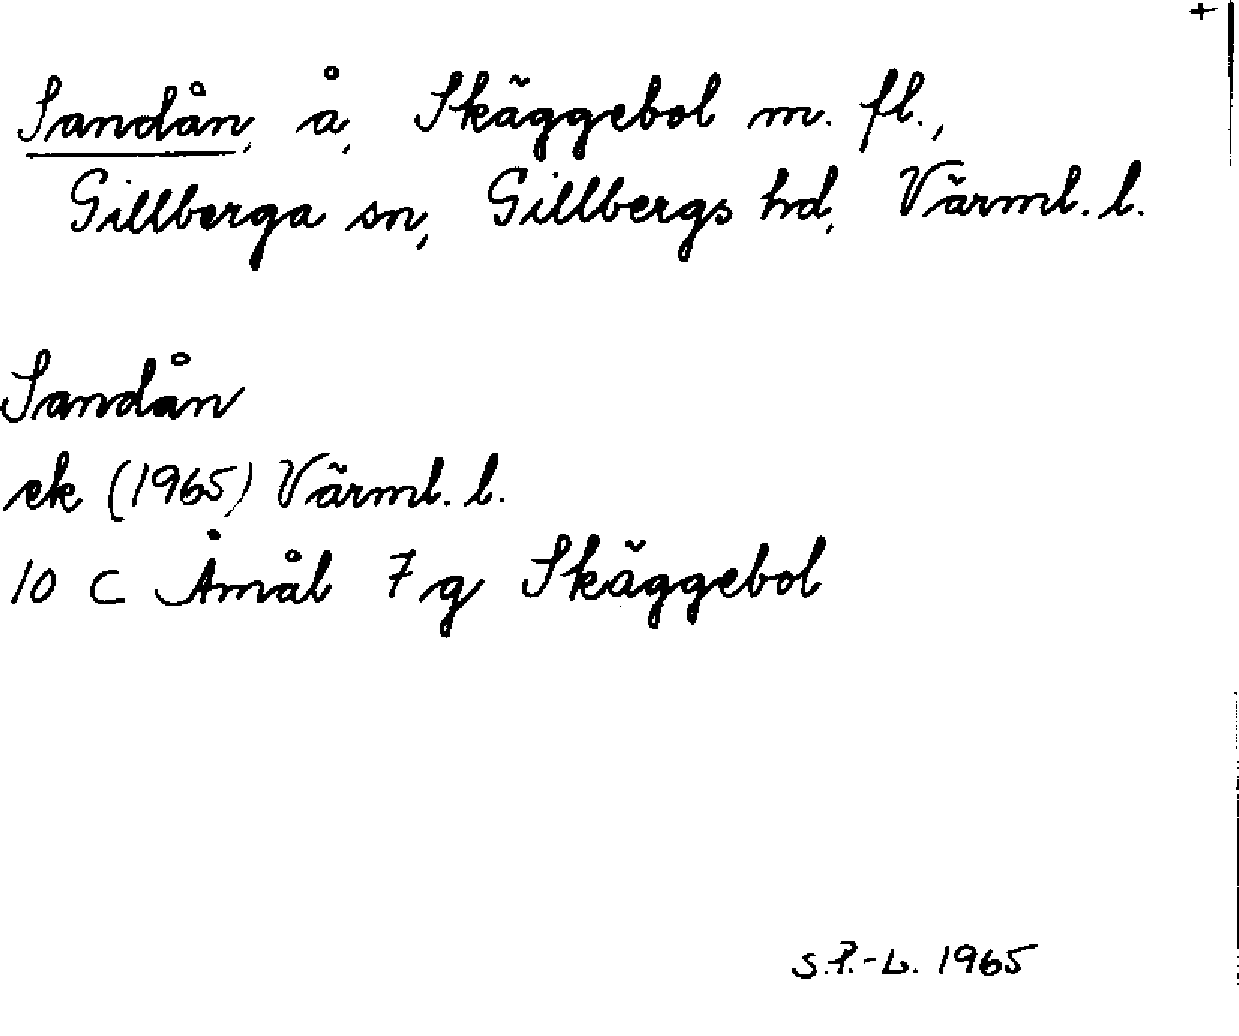 +
Sandån, å, Skäggebol m. fl.,
Gillberga sn, Gillbergs hd, Värml. l.
Sandån
ek (1965) Värml. l.
10 C Åmål 7 g Skäggebol
S.P.-L. 1965